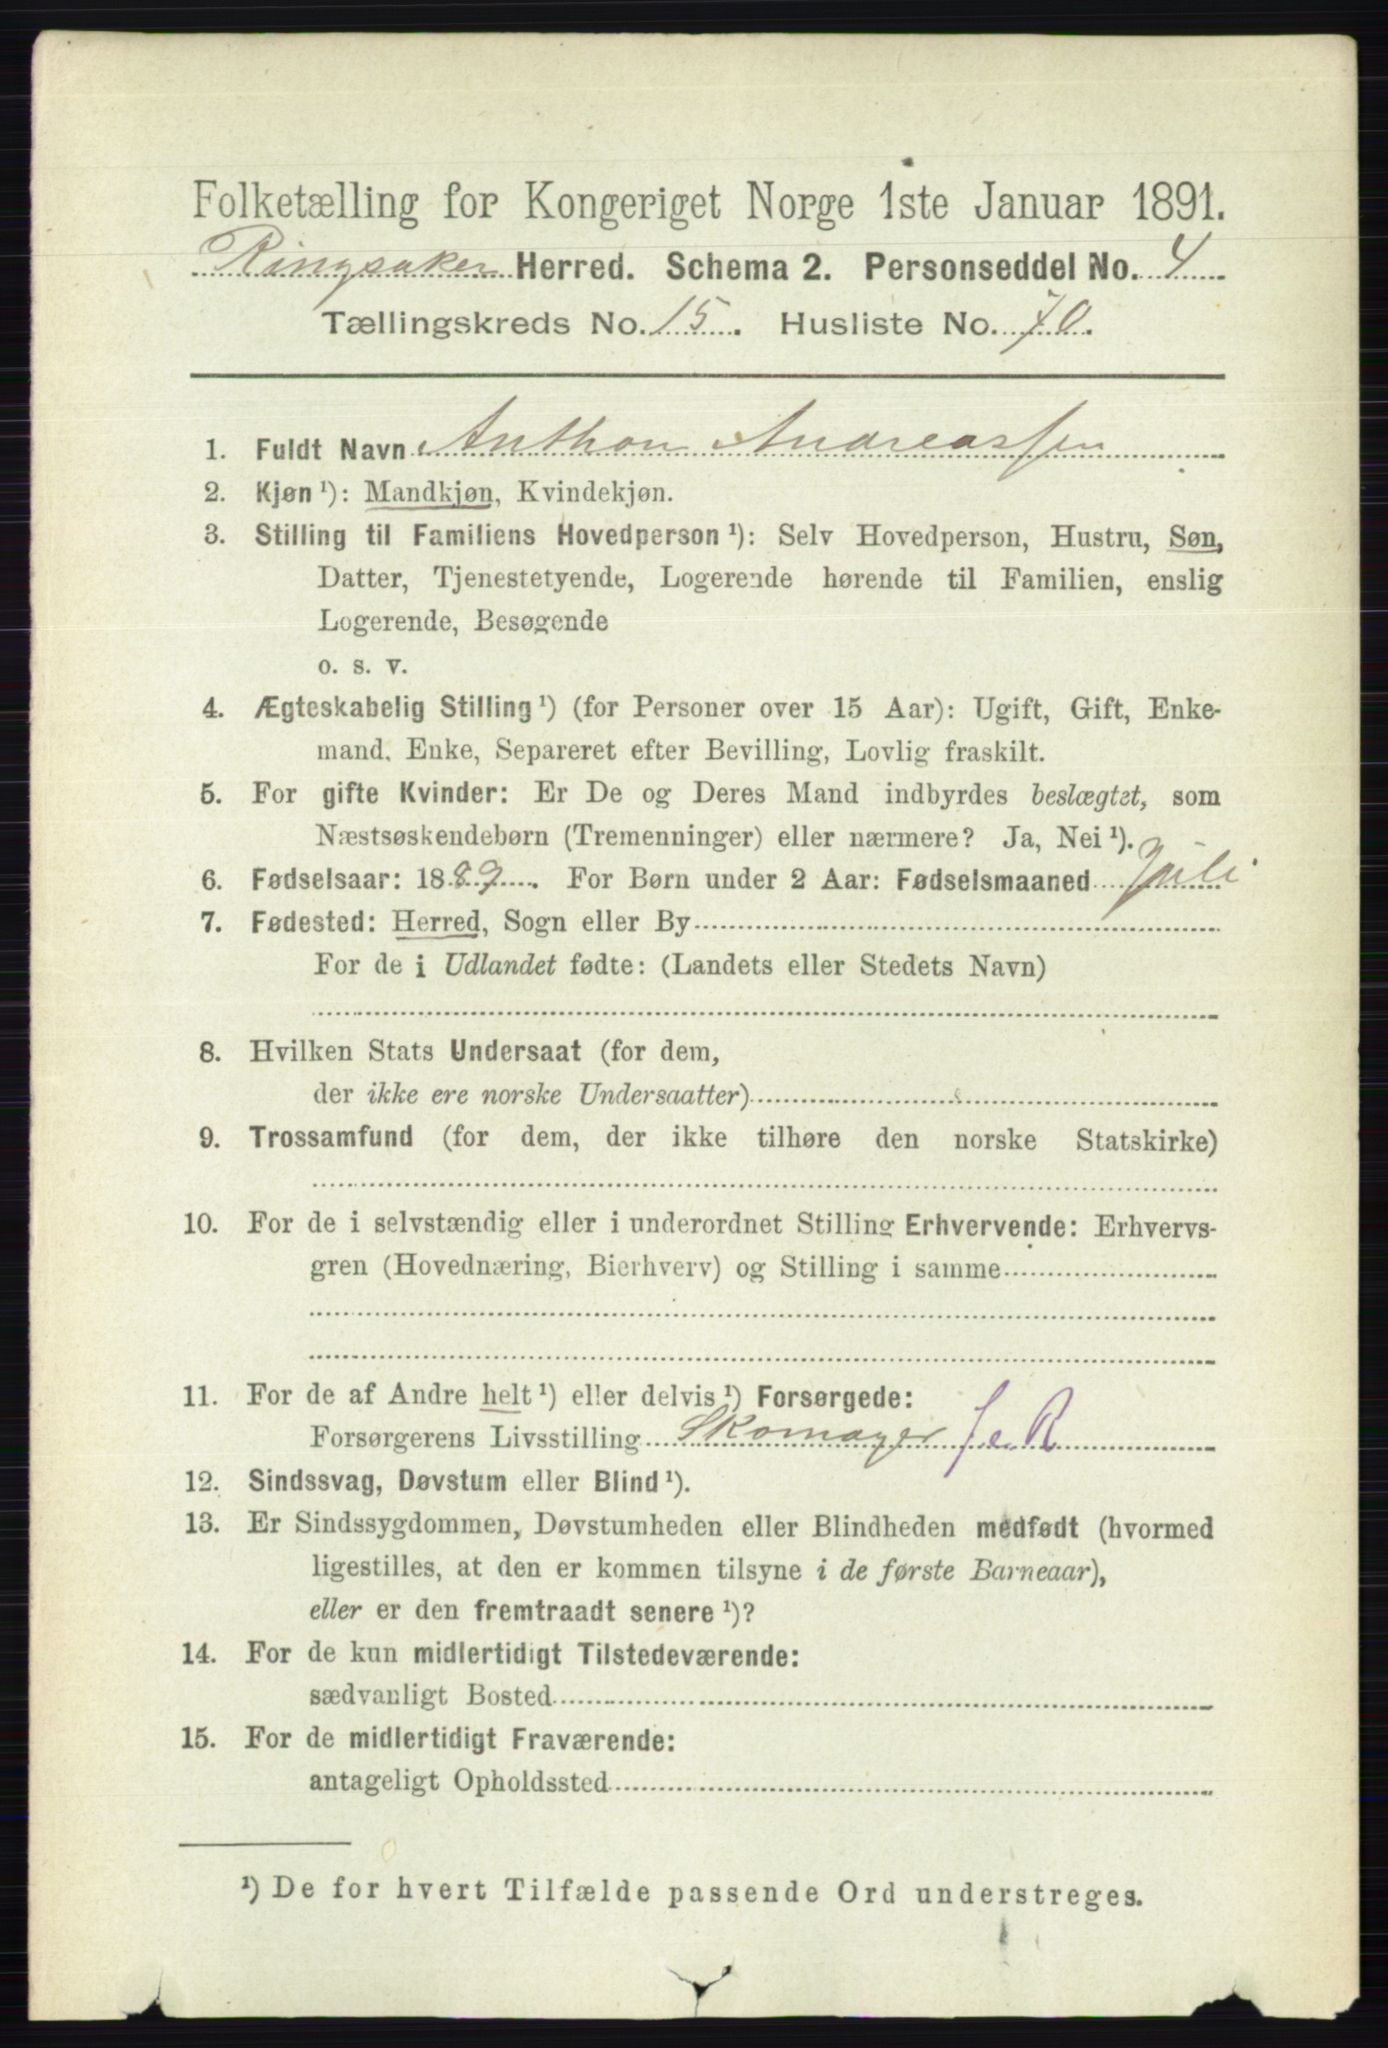 Folketælling for Kongeriget Norge 1ste Januar 1891.
Ringsaker Herred. Schema 2. Personseddel No. 4
Tællingskreds No. 15. Husliste No. 70.
1. Fuldt Navn Anthon Andreassen
2. Kjøn ¹): Mandkjøn, Kvindekjøn.
3. Stilling til Familiens Hovedperson ¹): Selv Hovedperson, Hustru, Søn,
Datter, Tjenestetyende, Logerende hørende til Familien, enslig
Logerende, Besøgende
o. s. v.
4. Ægteskabelig Stilling ¹) (for Personer over 15 Aar): Ugift, Gift, Enke-
mand, Enke, Separeret efter Bevilling, Lovlig fraskilt.
5. For gifte Kvinder: Er De og Deres Mand indbyrdes beslægtet, som
Næstsøskendebørn (Tremenninger) eller nærmere? Ja, Nei ¹).
6. Fødselsaar: 1889. For Børn under 2 Aar: Fødselsmaaned Juli
7. Fødested: Herred, Sogn eller By
For de i Udlandet fødte: (Landets eller Stedets Navn)
8. Hvilken Stats Undersaat (for dem,
der ikke ere norske Undersaatter)
9. Trossamfund (for dem, der ikke tilhøre den norske Statskirke)
10. For de i selvstændig eller i underordnet Stilling Erhvervende: Erhvervs-
gren (Hovednæring, Bierhverv) og Stilling i samme
11. For de af Andre helt ¹) eller delvis ¹) Forsørgede:
Forsørgerens Livsstilling Skomager
12. Sindssvag, Døvstum eller Blind ¹).
13. Er Sindssygdommen, Døvstumheden eller Blindheden medfødt (hvormed
ligestilles, at den er kommen tilsyne i de første Barneaar),
eller er den fremtraadt senere ¹)?
14. For de kun midlertidigt Tilstedeværende:
sædvanligt Bosted
15. For de midlertidigt Fraværende:
antageligt Opholdssted
¹) De for hvert Tilfælde passende Ord understreges.